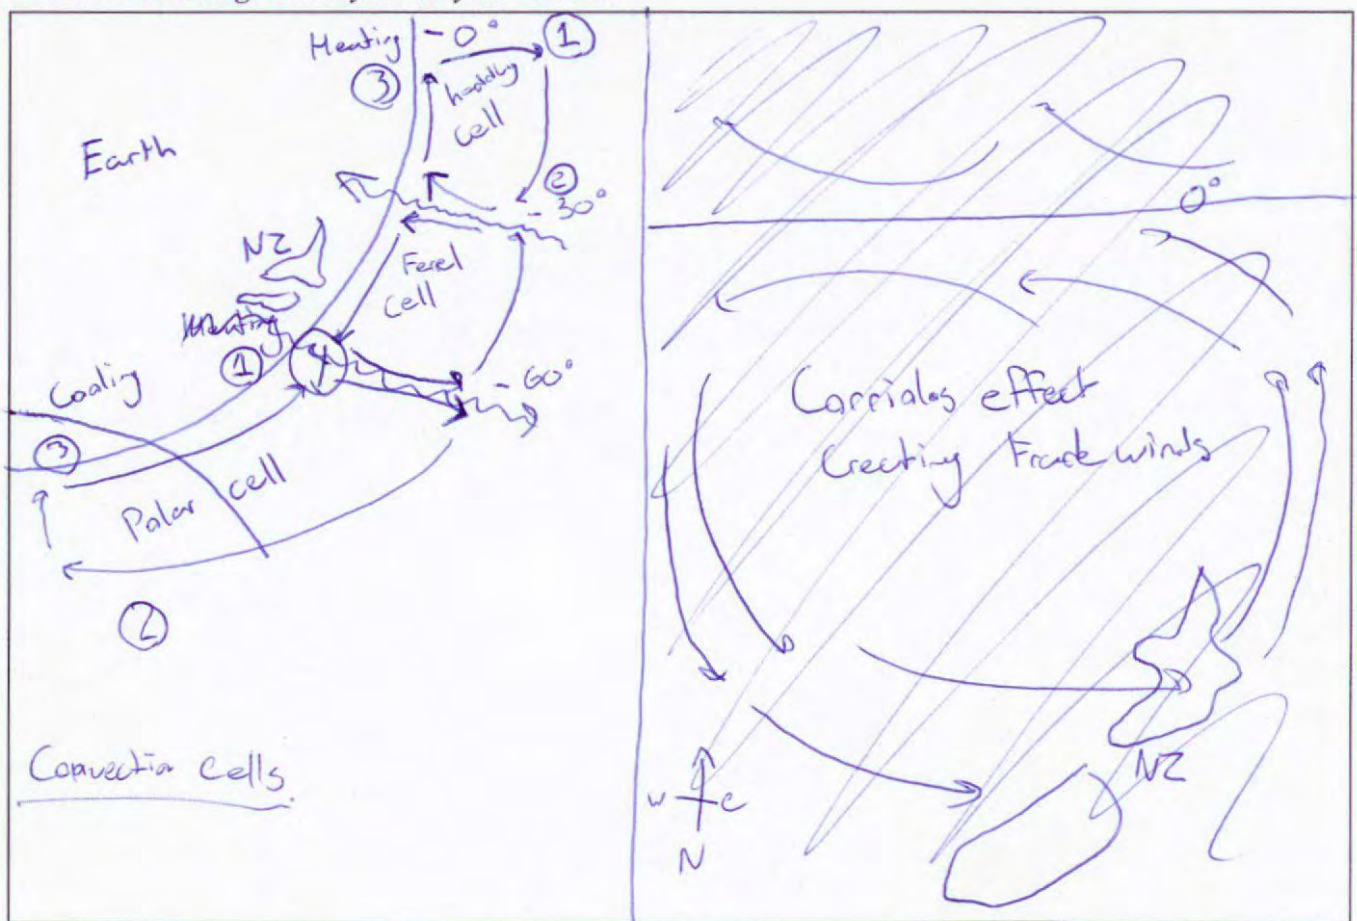 Heating
- 0°
①
③
hadley
cell
Earth
②
- 30°
NZ
Ferel
cell
Heating
①
4
- 60°
Cooling
③
Polar cell
②
Convection cells
0°
Corrialos effect
Creating Trade winds
NZ
W
E
N